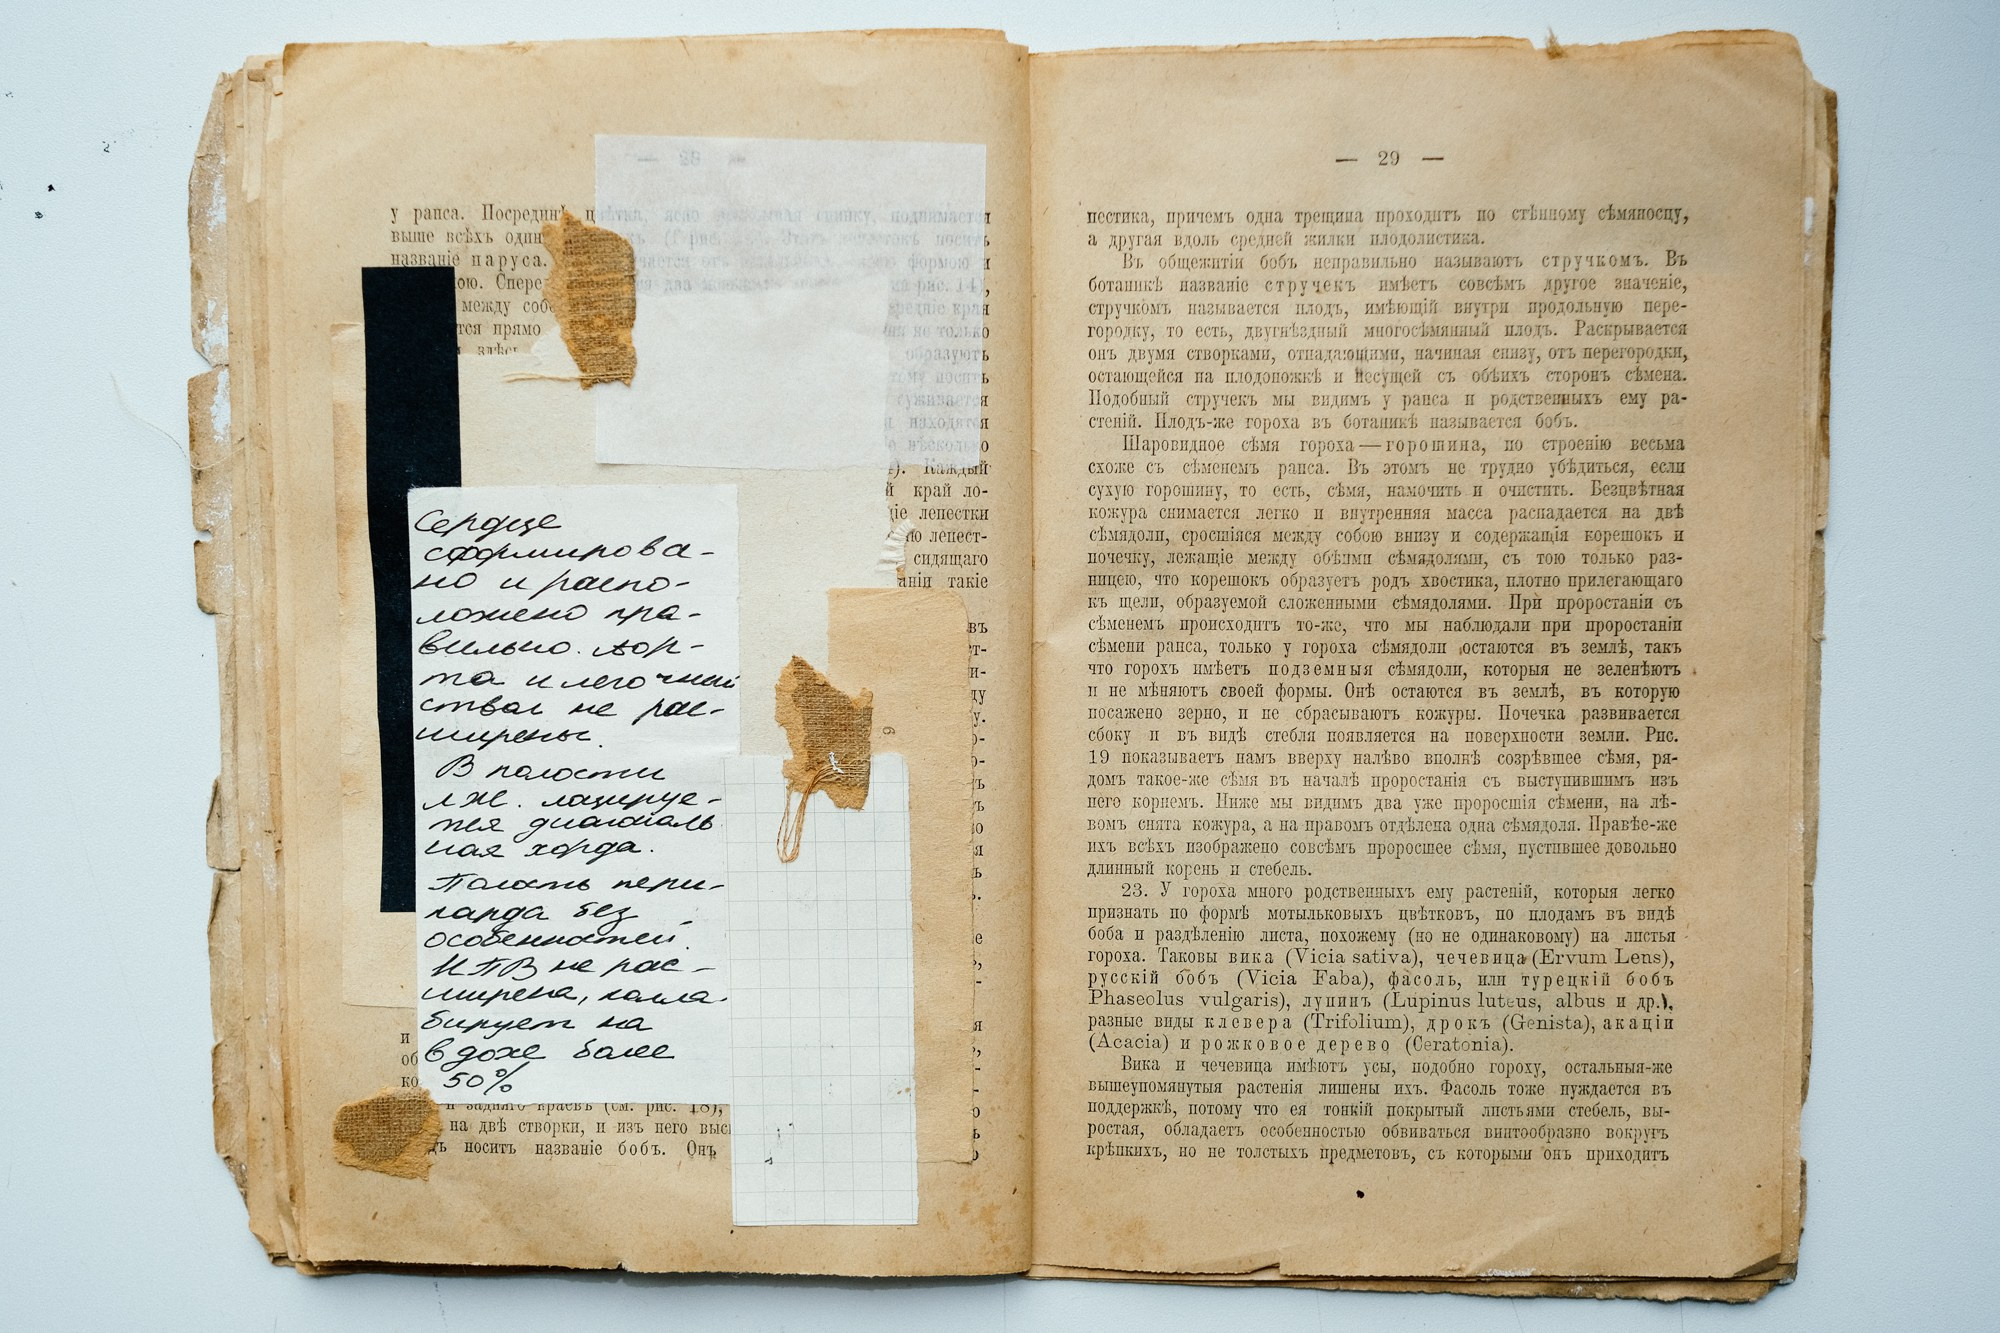 — 28 —
у рапса. Посрединѣ цвѣтка, ясно спинку, поднимается
выше всѣхъ один (Г рис. Этотъ лепестокъ носитъ
названіе паруса. формою и
кою. Спере два на рис. 14),
между собо средніе края
тся прямо не только
здѣсь образуютъ
тому носитъ
суживается
находятся
нѣсколько
Каждый
край ло-
діе лепестки
ю лепест-
сидящаго
аніи такіе
Сердце
сформирова-
но и распо-
ложено пра-
вильно. Аор-
та и легочный
ствол не рас-
ширены.
В полости
лж. лоцируе-
тся диагональ
ная хорда.
Полость пери-
карда без
особенностей.
НПВ не рас-
ширена, колла-
бирует на
вдохе более
50%
6
и
об
ко
и задняго краевъ (см. рис. 18),
на двѣ створки, и изъ него выс
дъ носитъ названіе бобъ. Онъ
— 29 —
пестика, причемъ одна трещина проходитъ по стѣнному сѣмяносцу,
а другая вдоль средней жилки плодолистика.
Въ общежитіи бобъ неправильно называютъ стручкомъ. Въ
ботаникѣ названіе стручекъ имѣетъ совсѣмъ другое значеніе,
стручкомъ называется плодъ, имѣющій внутри продольную пере-
городку, то есть, двугнѣздный многосѣмянный плодъ. Раскрывается
онъ двумя створками, отпадающими, начиная снизу, отъ перегородки,
остающейся на плодоножкѣ и несущей съ обѣихъ сторонъ сѣмена.
Подобный стручекъ мы видимъ у рапса и родственныхъ ему ра-
стеній. Плодъ-же гороха въ ботаникѣ называется бобъ.
Шаровидное сѣмя гороха — горошина, по строенію весьма
схоже съ сѣменемъ рапса. Въ этомъ не трудно убѣдиться, если
сухую горошину, то есть, сѣмя, намочить и очистить. Безцвѣтная
кожура снимается легко и внутренняя масса распадается на двѣ
сѣмядоли, сросшіяся между собою внизу и содержащія корешокъ и
почечку, лежащіе между обѣими сѣмядолями, съ тою только раз-
ницею, что корешокъ образуетъ родъ хвостика, плотно прилегающаго
къ щели, образуемой сложенными сѣмядолями. При проростаніи съ
сѣменемъ происходитъ то-же, что мы наблюдали при проростаніи
сѣмени рапса, только у гороха сѣмядоли остаются въ землѣ, такъ
что горохъ имѣетъ подземныя сѣмядоли, которыя не зеленѣютъ
и не мѣняютъ своей формы. Онѣ остаются въ землѣ, въ которую
посажено зерно, и не сбрасываютъ кожуры. Почечка развивается
сбоку и въ видѣ стебля появляется на поверхности земли. Рис.
19 показываетъ намъ вверху налѣво вполнѣ созрѣвшее сѣмя, ря-
домъ такое-же сѣмя въ началѣ проростанія съ выступившимъ изъ
него корнемъ. Ниже мы видимъ два уже проросшія сѣмени, на лѣ-
вомъ снята кожура, а на правомъ отдѣлена одна сѣмядоля. Правѣе-же
ихъ всѣхъ изображено совсѣмъ проросшее сѣмя, пустившее довольно
длинный корень и стебель.
23. У гороха много родственныхъ ему растеній, которыя легко
признать по формѣ мотыльковыхъ цвѣтковъ, по плодамъ въ видѣ
боба и раздѣленію листа, похожему (но не одинаковому) на листья
гороха. Таковы вика (Vicia sativa), чечевица (Ervum Lens),
русскій бобъ (Vicia Faba), фасоль, или турецкій бобъ
Phaseolus vulgaris), лупинъ (Lupinus luteus, albus и др.),
разные виды клевера (Trifolium), дрокъ (Genista), акаціи
(Acacia) и рожковое дерево (Ceratonia).
Вика и чечевица имѣютъ усы, подобно гороху, остальныя-же
вышеупомянутыя растенія лишены ихъ. Фасоль тоже нуждается въ
поддержкѣ, потому что ея тонкій покрытый листьями стебель, вы-
ростая, обладаетъ особенностью обвиваться винтообразно вокругъ
крѣпкихъ, но не толстыхъ предметовъ, съ которыми онъ приходитъ